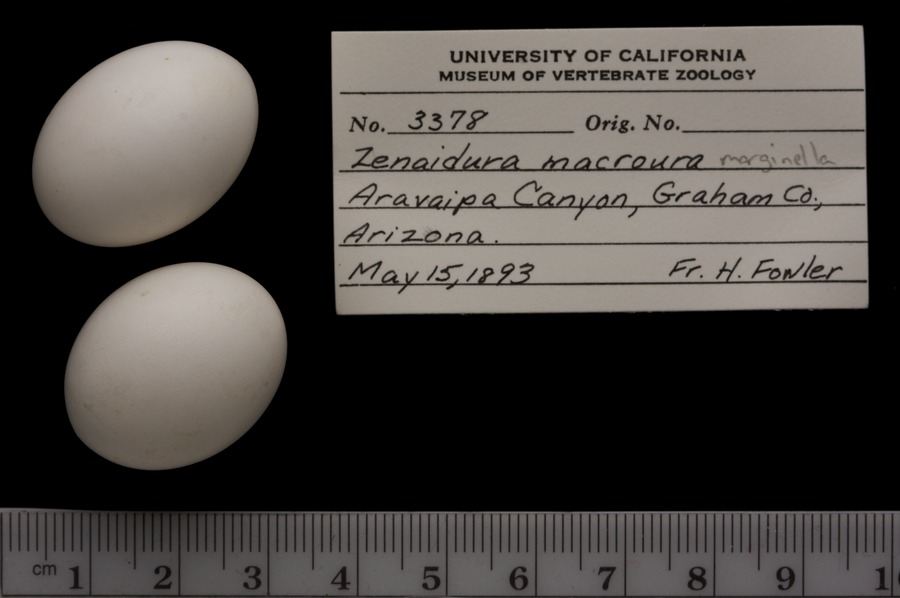 UNIVERSITY OF CALIFORNIA
MUSEUM OF VERTEBRATE ZOOLOGY
No. 3378 Orig. No.
Zenaidura macroura marginella
Aravaipa Canyon, Graham Co.,
Arizona.
May 15, 1893 Fr. H. Fowler
cm 1 2 3 4 5 6 7 8 9